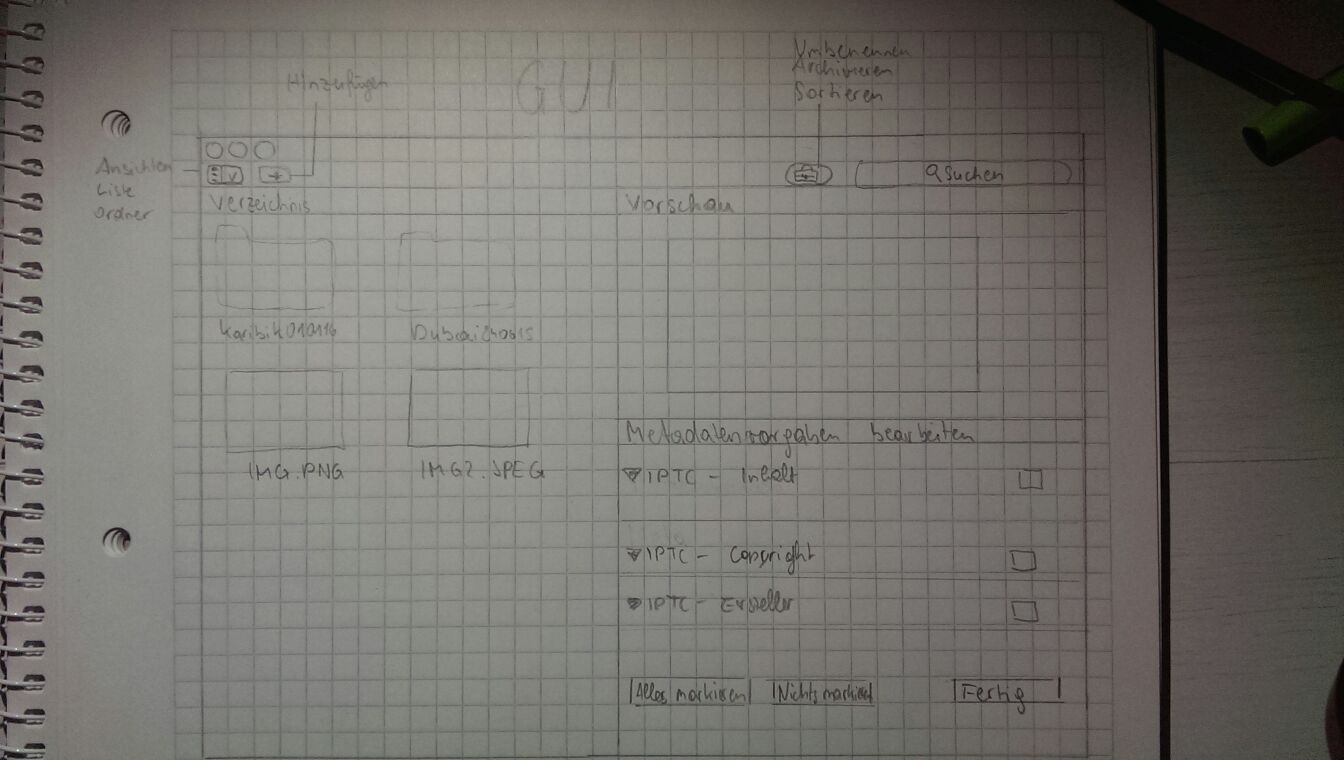 GUI
Hinzufügen
Umbenennen
Archivieren
Sortieren
Ansichten
Liste
Ordner
Suchen
Verzeichnis
Vorschau
Karibik010116
IMG.PNG
IMG2.JPEG
Metadatenvorgaben bearbeiten
IPTC - Inhalt
IPTC - Copyright
IPTC - Ersteller
Alles markieren
Nichts markieren
Fertig